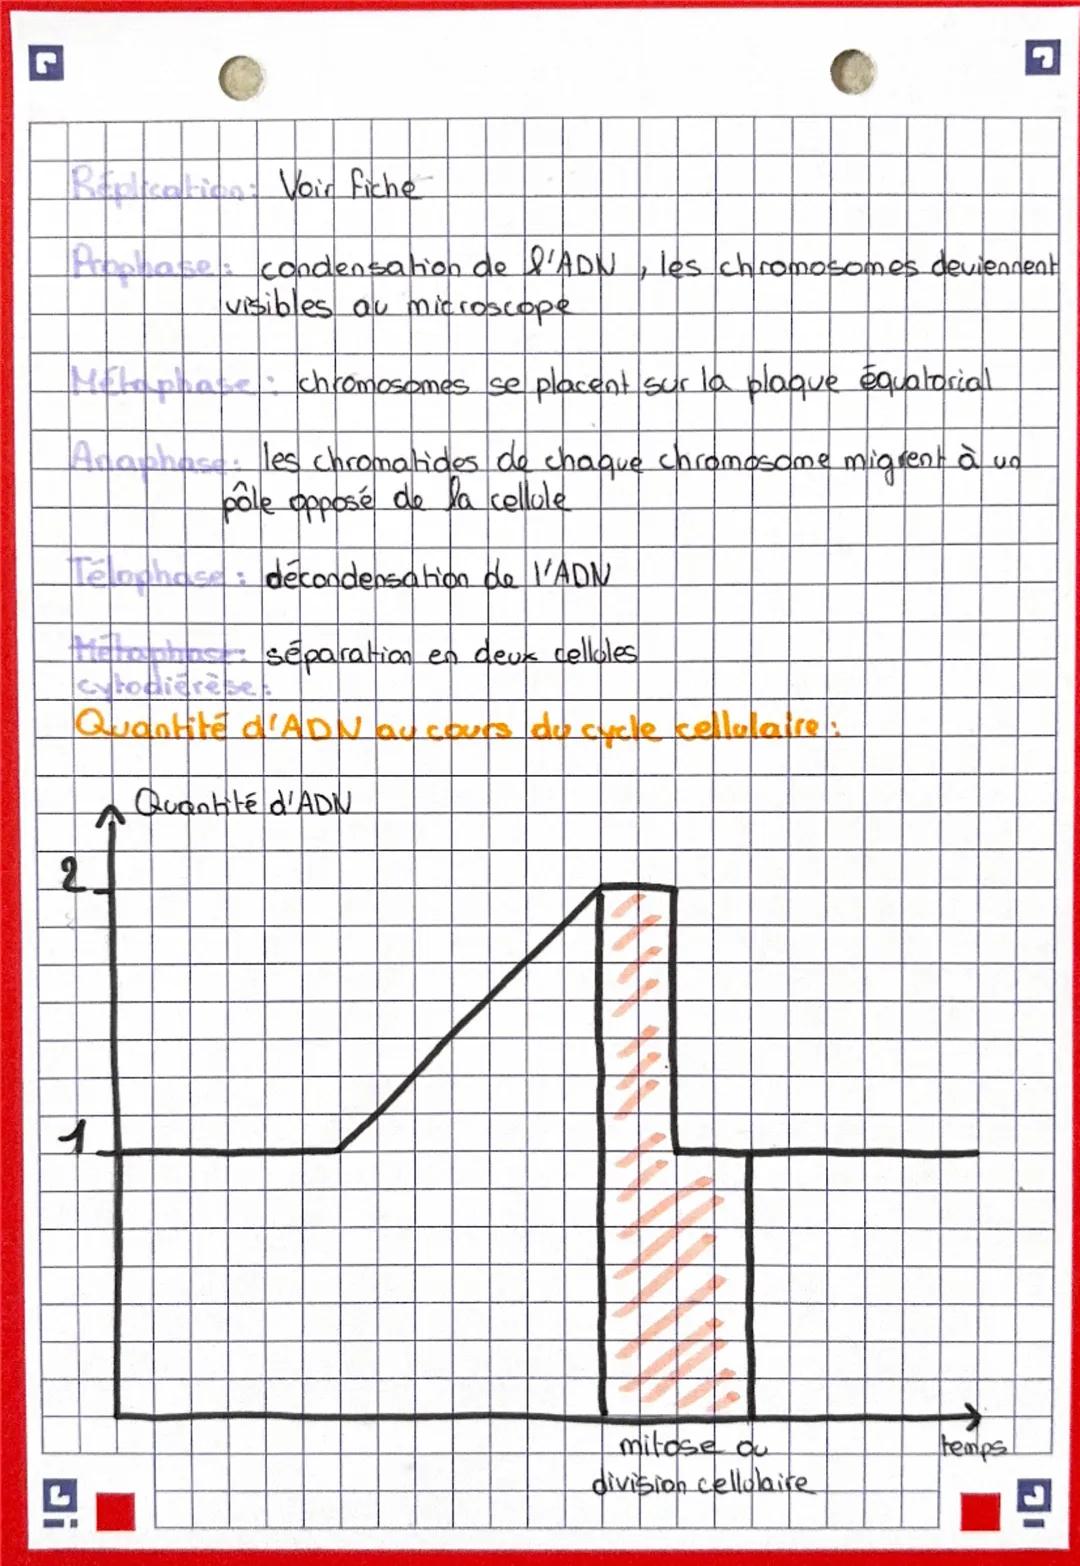 Réplication: Voir fiche
Prophase: condensation de l'ADN, les chromosomes deviennent
visibles au microscope
Métaphase: chromosomes se placent sur la plaque équatorial
Anaphase: les chromatides de chaque chromosome migrent à un
pôle opposé de la cellule
Télophase: décondensation de l'ADN
Métaphase: séparation en deux cellules
cytodiérèse:
Quantité d'ADN au cours du cycle cellulaire:
Quantité d'ADN
2
1
mitose ou
division cellulaire
temps